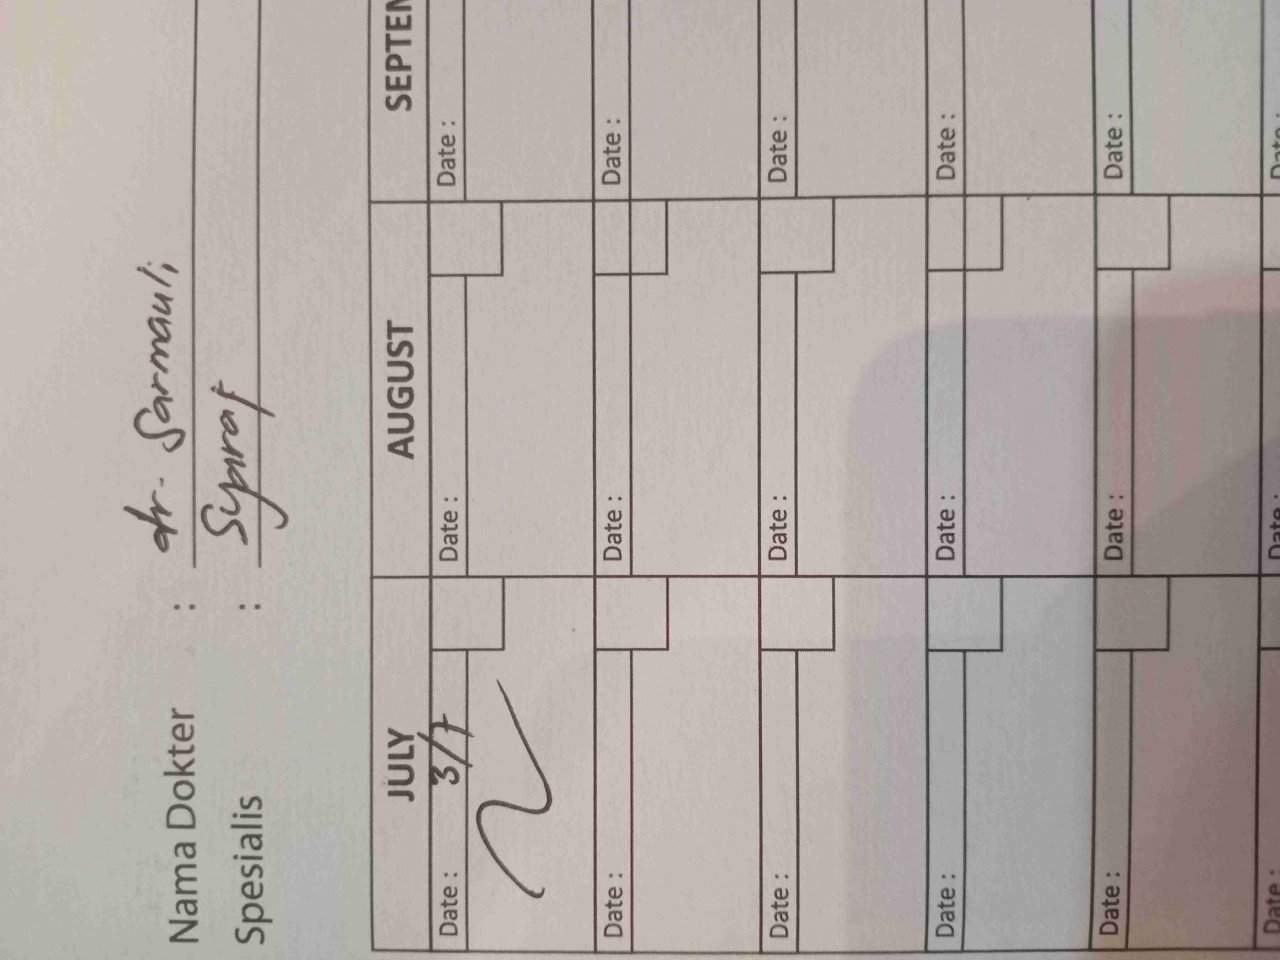 Nama Dokter : dr. Sarmauli
Spesialis : Syaraf
JULY AUGUST SEPTEM
Date : 3/7 Date : Date :
Date : Date : Date :
Date : Date : Date :
Date : Date : Date :
Date : Date : Date :
Date : Date : Date :